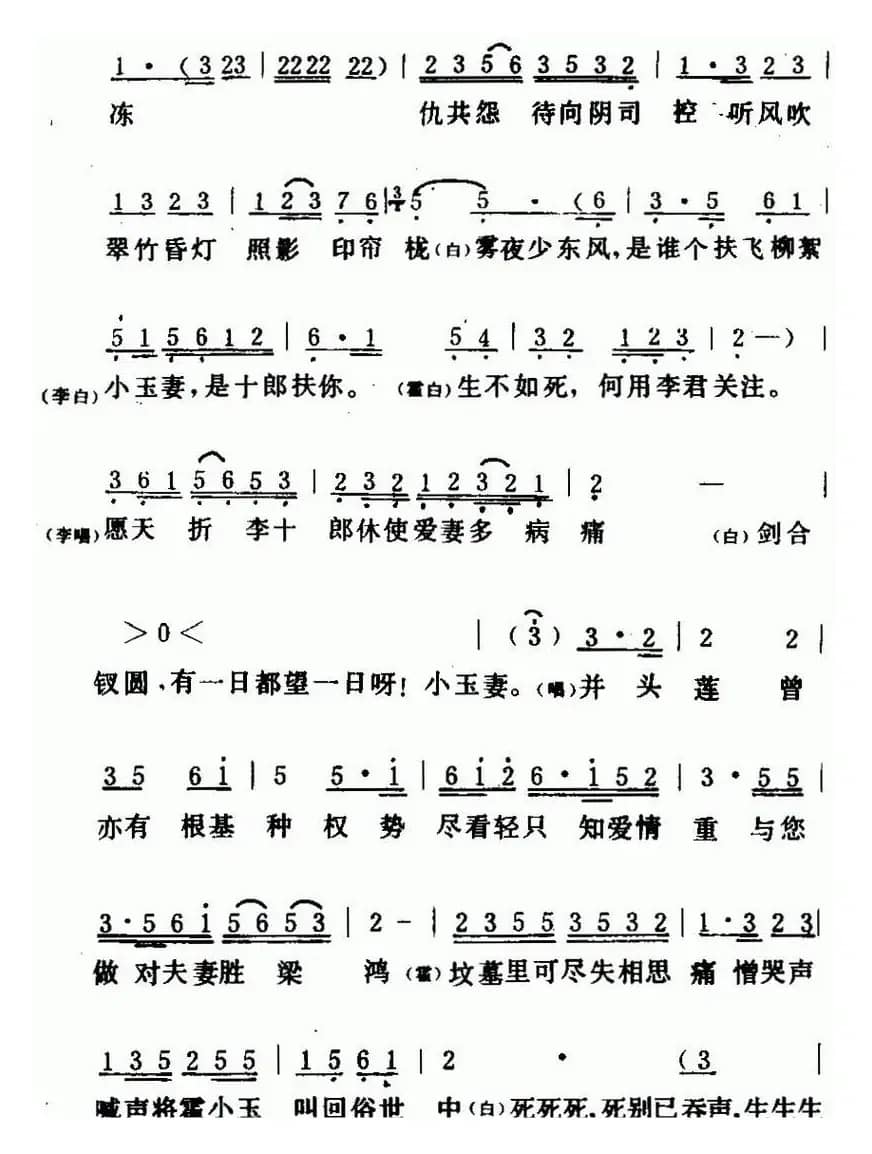 1·(3 23 | 2222 22) | 2356 3532 | 1·3 23 |
冻 仇共怨 待向阴司 控 听风吹
13 23 | 123 76 | 3/4 5 5·(6 | 3·5 61 |
翠竹昏灯 照影 印帘 栊(白)雾夜少东风,是谁个扶飞柳絮
51 5612 | 6·1 54 | 32 123 | 2—) |
(李白)小玉妻,是十郎扶你。(霍白)生不如死,何用李君关注。
361 5653 | 232 12321 | 2 — |
(李唱)愿天 折 李十 郎休使爱妻多 病 痛 (白)剑合
>0< | (3) 3·2 | 2 2 |
钗圆,有一日都望一日呀!小玉妻。(唱)并 头 莲 曾
35 61 | 5 5·1 | 612 6·152 | 3·55 |
亦有 根基 种 权 势 尽看轻只 知爱情 重 与您
3·561 5653 | 2- | 2355 3532 | 1·3 23 |
做 对夫妻胜 梁 鸿(霍)坟墓里可尽失相思 痛 憎哭声
135 255 | 15 61 | 2 · (3 |
喊声将霍小玉 叫回俗世 中(白)死死死,死别已吞声,生生生